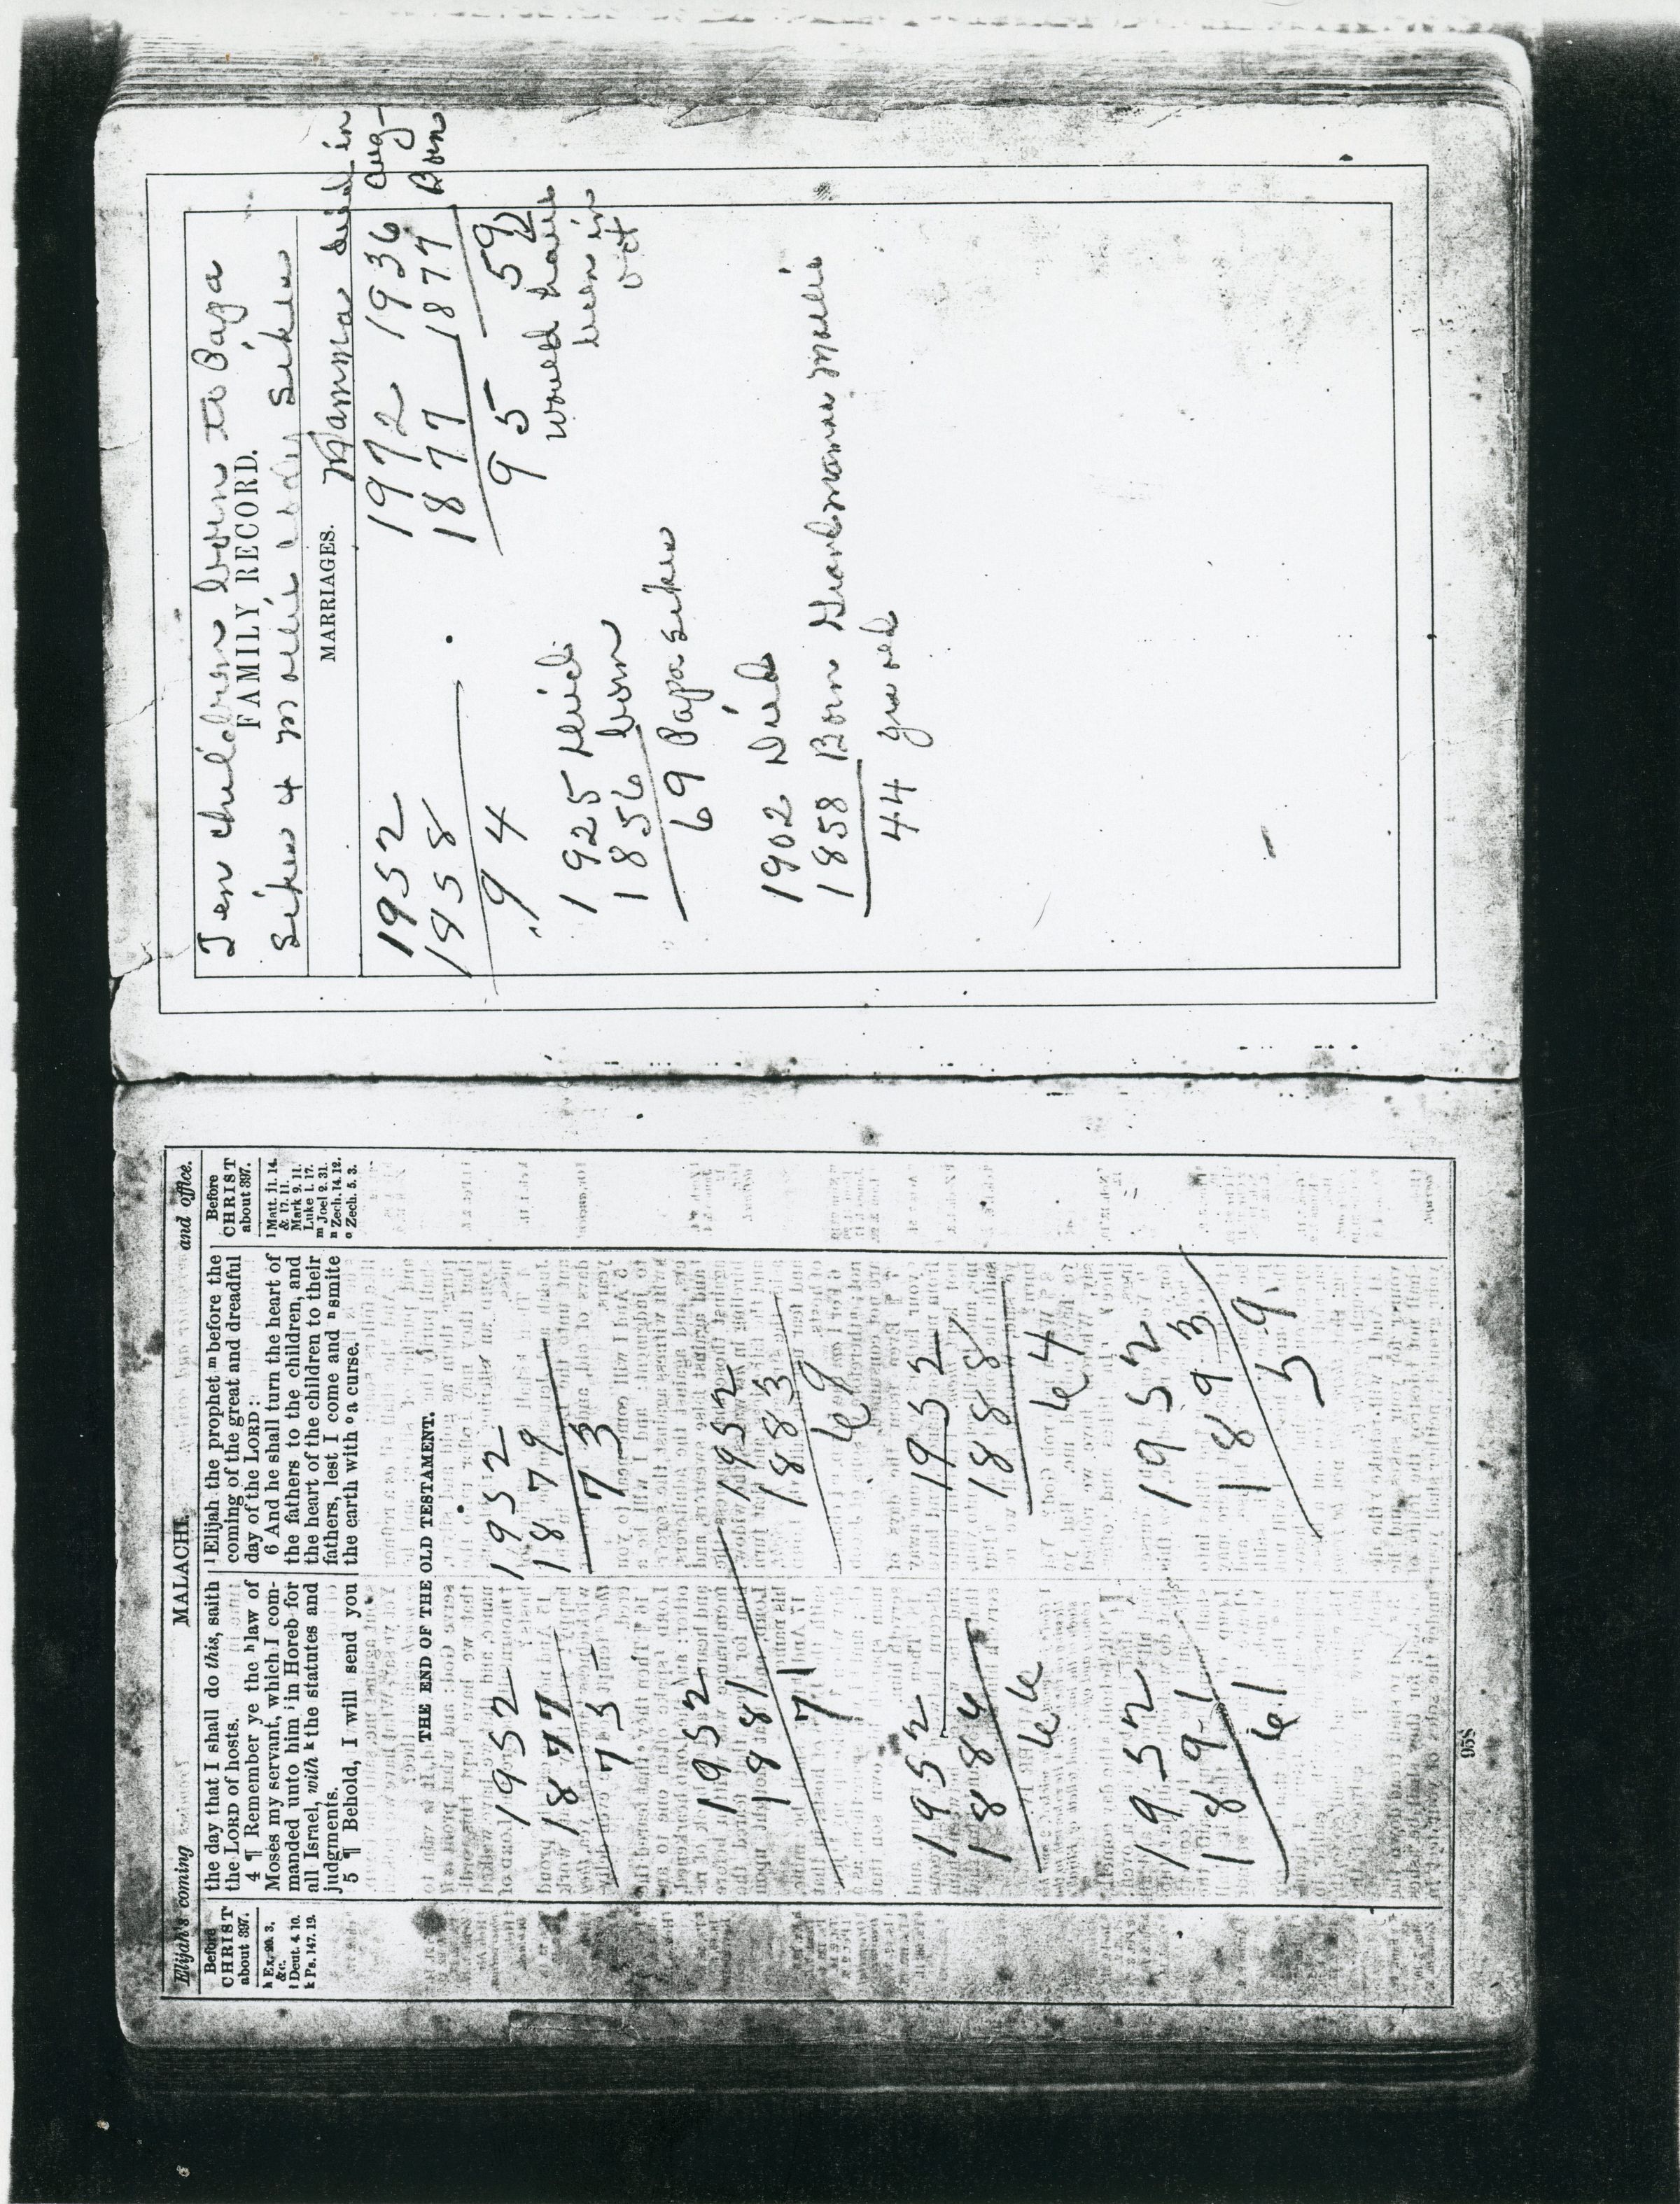 Elijah's coming
MALACHI.
and office.
Before
CHRIST
about 397.
h Ex. 20. 3,
&c.
i Deut. 4. 10.
k Ps. 147. 19.
the day that I shall do this, saith
the LORD of hosts.
4 ¶ Remember ye the h law of
Moses my servant, which I com-
manded unto him i in Horeb for
all Israel, with k the statutes and
judgments.
5 ¶ Behold, I will send you
l Elijah the prophet m before the
coming of the great and dreadful
day of the LORD:
6 And he shall turn the heart of
the fathers to the children, and
the heart of the children to their
fathers, lest I come and n smite
the earth with o a curse.
Before
CHRIST
about 397.
l Matt. 11. 14.
& 17. 11.
Mark 9. 11.
Luke 1. 17.
m Joel 2. 31.
n Zech. 14. 12.
o Zech. 5. 3.
THE END OF THE OLD TESTAMENT.
1952 1952
1877 1879
75 73
1952 1952
1881 1883
71 69
1952 1952
1886 1888
66 64
1952 1952
1891 1893
61 59
958
Ten children born to Papa
FAMILY RECORD.
Sikes & Mollie Sikes
MARRIAGES.
Mamma died in
1952 1972 1936 Aug-
1858 1877 1877 Born
94 95 59
would have
been in
Oct
1925 died
1856 born
69 Papa Sikes
1902 Died
1858 Born Grandmama Mollie
44 yrs old